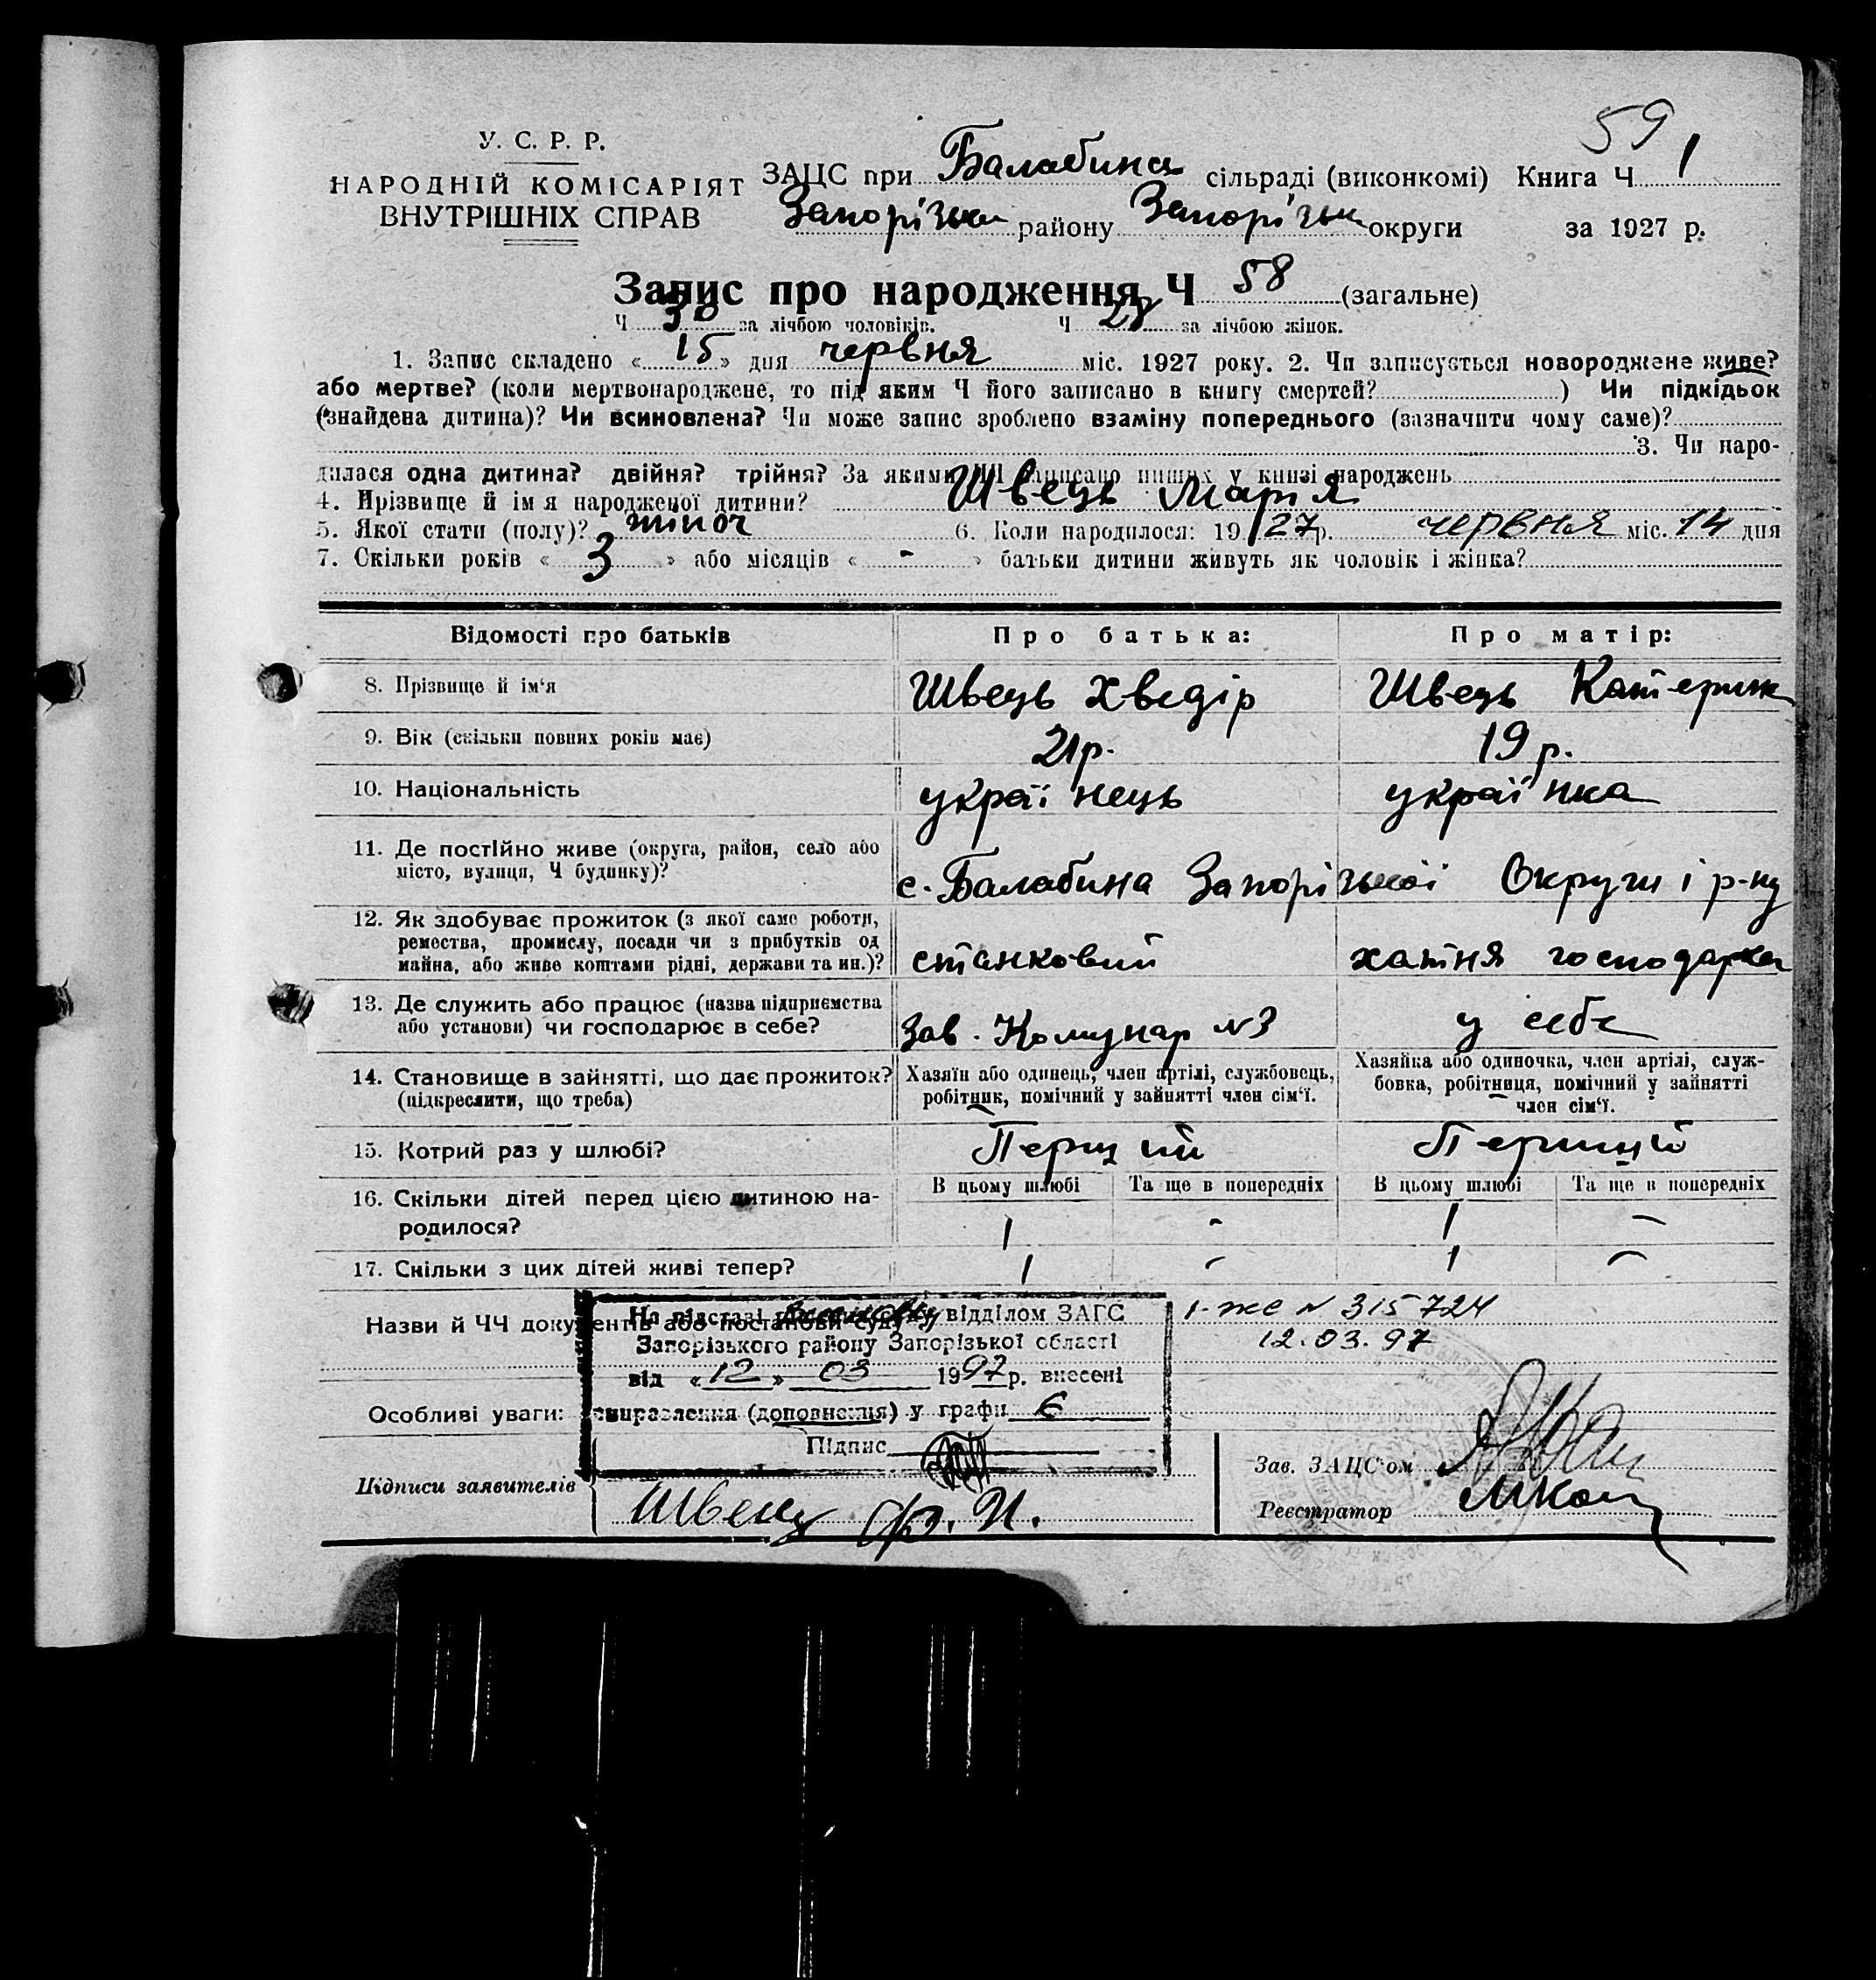 59
У. С. Р. Р.
НАРОДНІЙ КОМІСАРІЯТ
ВНУТРІШНІХ СПРАВ
ЗАЦС при Балабина сільраді (виконкомі) Книга Ч 1
Запорізьк району Запорізьк округи за 1927 р.
Запис про народження Ч 58 (загальне)
Ч 30 за лічбою чоловіків. Ч 28 за лічбою жінок.
1. Запис складено « 15 » дня червня міс. 1927 року. 2. Чи записується новороджене живе?
або мертве? (коли мертвонароджене, то під яким Ч його записано в книгу смертей? ) Чи підкідьок
(знайдена дитина)? Чи всиновлена? Чи може запис зроблено взаміну попереднього (зазначити чому саме)?
3. Чи наро-
дилася одна дитина? двійня? трійня? За якими ЧЧ записано инших у книзі народжень
4. Прізвище й ім я народженої дитини? Швець Марія
5. Якої стати (полу)? жіноч 6. Коли народилося: 19 27р. червня міс. 14 дня
7. Скільки років « 3 » або місяців « - » батьки дитини живуть як чоловік і жінка?
Відомості про батьків Про батька: Про матір:
8. Прізвище й ім‘я Швець Хведір Швець Катерина
9. Вік (скільки повних років має) 21р. 19 р.
10. Національність українець українка
11. Де постійно живе (округа, район, село або
місто, вулиця, Ч будинку)? с. Балабина Запорізької Округи і р-ну
12. Як здобуває прожиток (з якої саме роботи,
ремества, промислу, посади чи з прибутків од
майна, або живе коштами рідні, держави та ин.)? станковий хатня господарка
13. Де служить або працює (назва підприємства
або установи) чи господарює в себе? Зав. Комунар №3 у себе
14. Становище в зайнятті, що дає прожиток?
(підкреслити, що треба)
Хазяїн або одинець, член артілі, службовець,
робітник, помічний у зайнятті член сім‘ї.
Хазяйка або одиночка, член артілі, служ-
бовка, робітниця, помічний у зайнятті
член сім‘ї.
15. Котрий раз у шлюбі? Перший Перший
В цьому шлюбі Та ще в попередніх В цьому шлюбі Та ще в попередніх
16. Скільки дітей перед цією дитиною на-
родилося? 1 - 1 -
17. Скільки з цих дітей живі тепер? 1 - 1 -
Назви й ЧЧ документів або постанови суду
На підставі висновку відділом ЗАГС
Запорізького району Запорізької області
від « 12 » 03 1997р. внесені
виправлення (доповнення) у графи 6
Підпис
І-жс № 315724
12.03.97
Особливі уваги:
Підписи заявителів Швец Ф. И.
Зав. ЗАЦС‘ом
Реєстратор